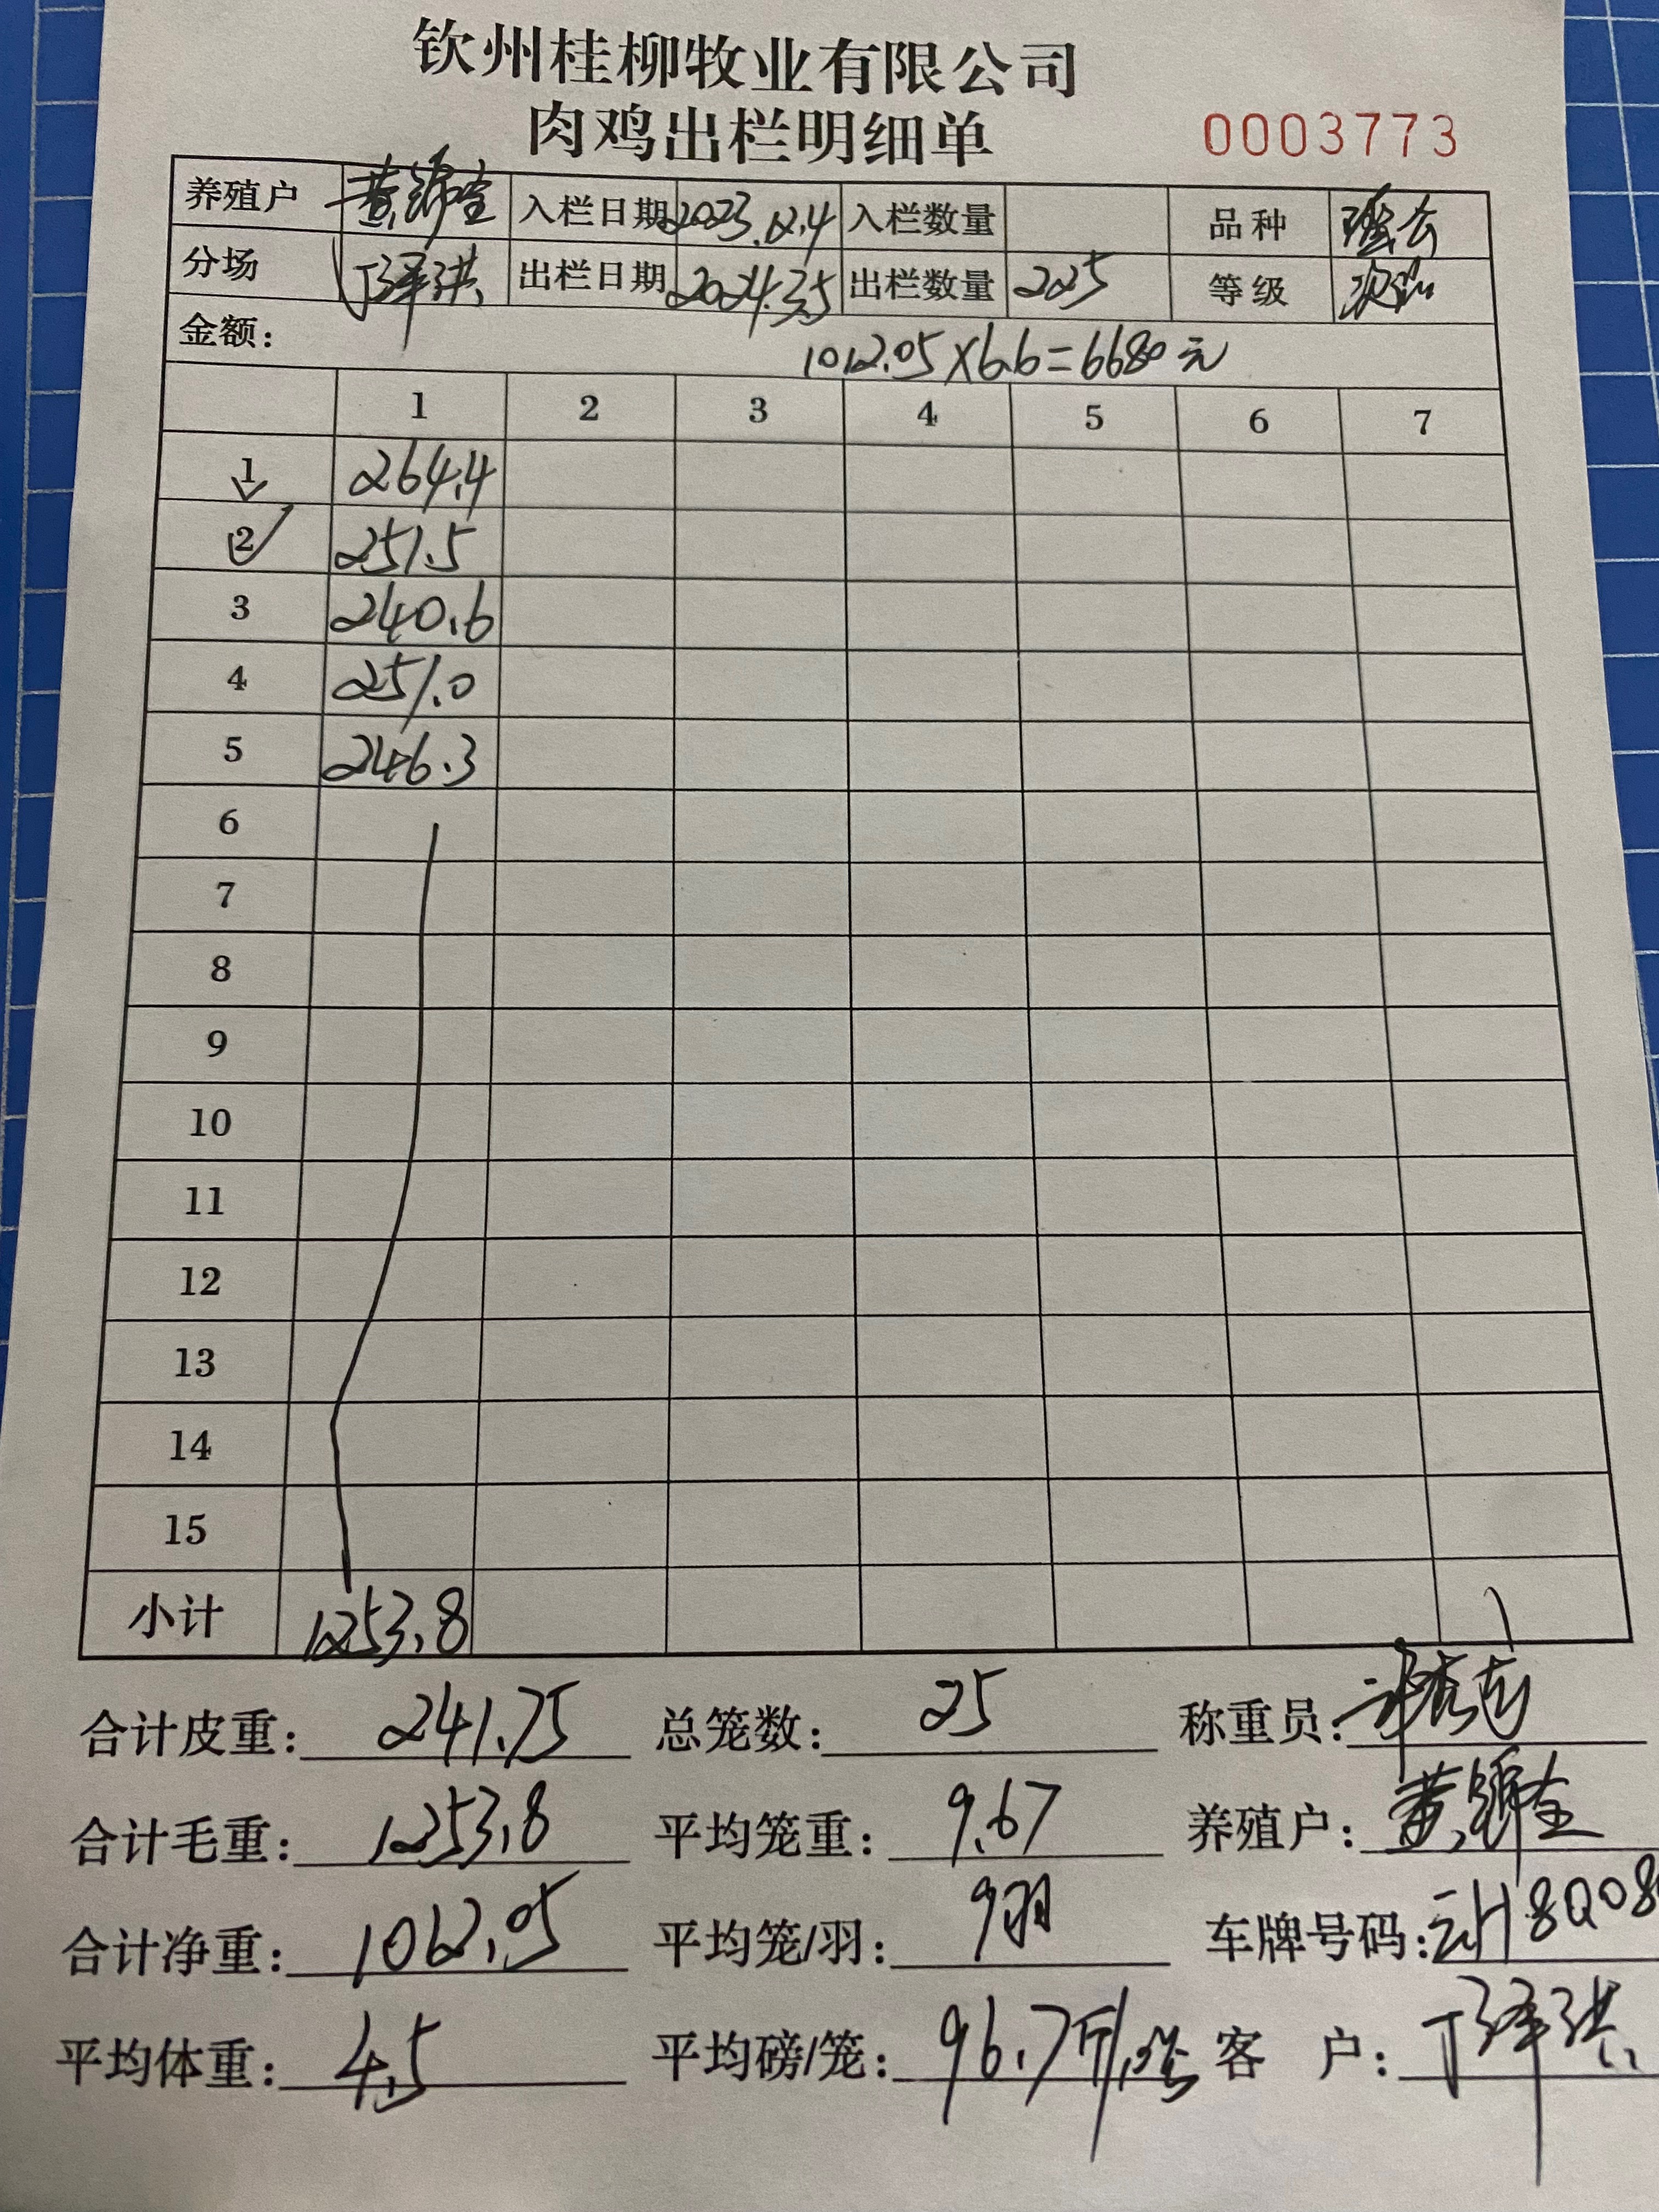 钦州桂柳牧业有限公司
肉鸡出栏明细单 0003773
养殖户 入栏日期 2023.12.4 入栏数量 品种
分场 丁泽洪 出栏日期 2024.3.5 出栏数量 225 等级
金额: 1012.05×6.6=6680元
1 2 3 4 5 6 7
1 264.4
2 251.5
3 240.6
4 251.0
5 246.3
6
7
8
9
10
11
12
13
14
15
小计 1253.8
合计皮重: 241.75 总笼数: 25 称重员:
合计毛重: 1253.8 平均笼重: 9.67 养殖户:
合计净重: 1012.05 平均笼/羽: 9羽 车牌号码: 云H8Q08
平均体重: 4.5 平均磅/笼: 96.7斤/笼 客 户: 丁泽洪